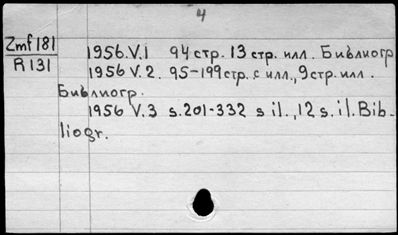 4
Zmf 181
R 131
1956.V.1 94 стр. 13 стр. илл. Библиогр
1956 V.2. 95-199 стр. с илл., 9 стр. илл.
Библиогр.
1956 V.3 s.201-332 s il., 12 s. il. Bib-
liogr.